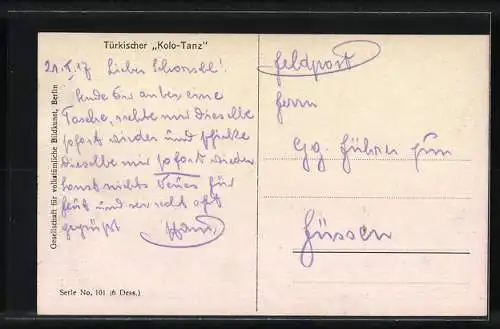 Türkischer „Kolo-Tanz"
21. I. 17 Lieber Schorschl!
Sende Dir anbei eine
Tasche, richte mir dieselbe
sofort wieder und schicke
dieselbe mir sofort wieder
sonst nichts Neues für
heut und sei recht oft
gegrüßt Hans
Feldpost
Herrn
Gg. jun
Füssen
Gesellschaft für volkstümliche Bildkunst, Berlin
Serie No. 101 (6 Dess.)